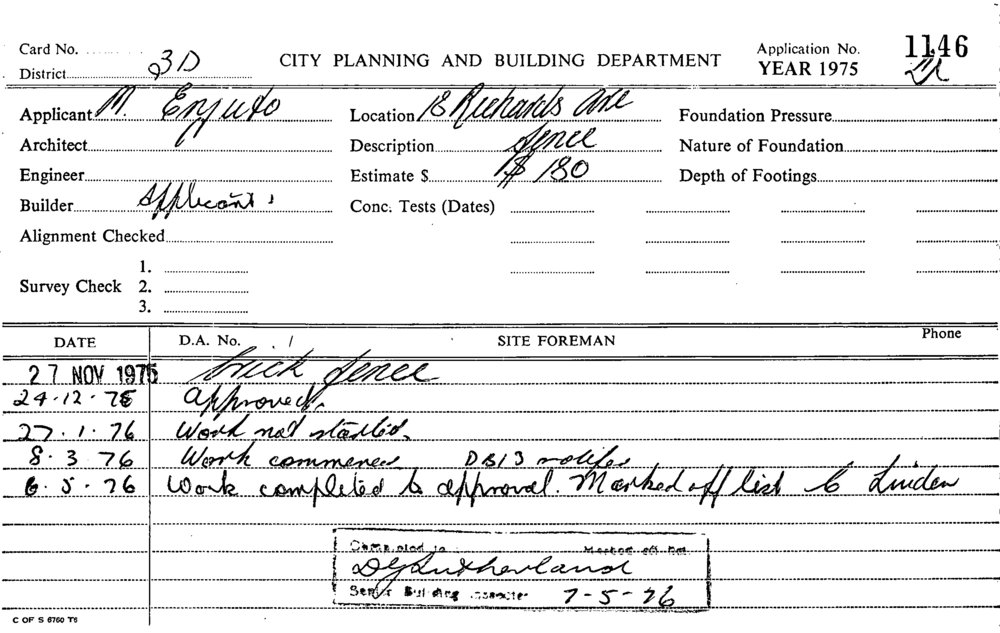 Card No.
District 3D
CITY PLANNING AND BUILDING DEPARTMENT
Application No. 1146
YEAR 1975
Applicant M. Enjuto
Location 18 Richards Ave
Foundation Pressure
Architect
Description fence
Nature of Foundation
Engineer
Estimate $ $180
Depth of Footings
Builder Applicant
Conc. Tests (Dates)
Alignment Checked
Survey Check
1.
2.
3.
DATE D.A. No. / SITE FOREMAN Phone
27 NOV 1975 brick fence
24.12.75 approved.
27.1.76 Work not started.
8.3.76 Work commenced DB13
6.5.76 Work completed to approval. Marked off list C Linden
Completed in Marked off
D G Sutherland
Senior Building Inspector 7-5-76
C OF S 6760 T6